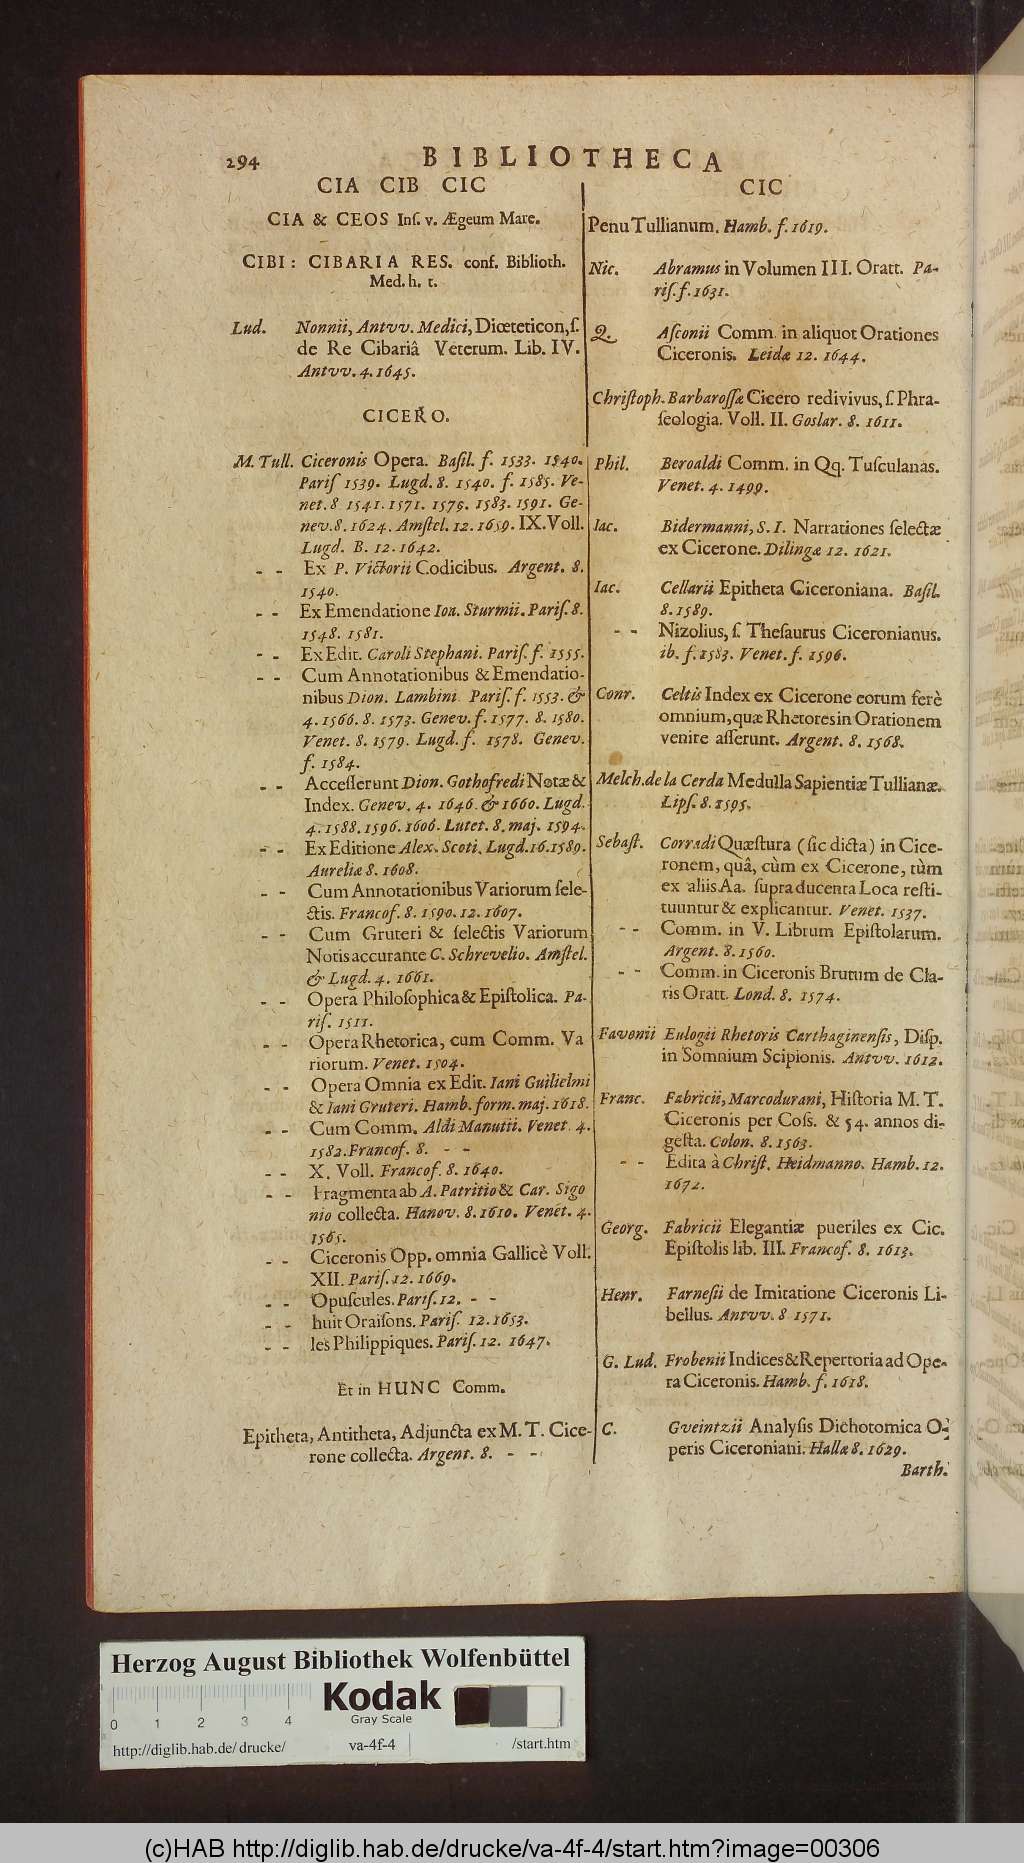 294 BIBLIOTHECA
CIA CIB CIC
CIA & CEOS Inſ. v. Ægeum Mare.
CIBI: CIBARIA RES. conf. Biblioth.
Med. h. t.
Lud. Nonnii, Antvv. Medici, Diœteticon, ſ.
de Re Cibariâ Veterum. Lib. IV.
Antvv. 4. 1645.
CICERO.
M. Tull. Ciceronis Opera. Baſil. f. 1533. 1540.
Pariſ 1539. Lugd. 8. 1540. f. 1585. Ve-
net. 8 1541. 1571. 1575. 1583. 1591. Ge-
nev. 8. 1624. Amſtel. 12. 1659. IX. Voll.
Lugd. B. 12. 1642.
- - Ex P. Victorii Codicibus. Argent. 8.
1540.
- - Ex Emendatione Ioa. Sturmii. Pariſ. 8.
1548. 1581.
- - Ex Edit. Caroli Stephani. Pariſ. f. 1555.
- - Cum Annotationibus & Emendatio-
nibus Dion. Lambini Pariſ. f. 1553. &
4. 1566. 8. 1573. Genev. f. 1577. 8. 1580.
Venet. 8. 1579. Lugd. f. 1578. Genev.
f. 1584.
- - Acceſſerunt Dion. Gothofredi Notæ &
Index. Genev. 4. 1646. & 1660. Lugd.
4. 1588. 1596. 1606. Lutet. 8. maj. 1594.
- - Ex Editione Alex. Scoti. Lugd. 16. 1589.
Aureliæ 8. 1608.
- - Cum Annotationibus Variorum ſele-
ctis. Francof. 8. 1590. 12. 1607.
- - Cum Gruteri & ſelectis Variorum
Notis accurante C. Schrevelio. Amſtel.
& Lugd. 4. 1661.
- - Opera Philoſophica & Epiſtolica. Pa-
riſ. 1511.
- - Opera Rhetorica, cum Comm. Va
riorum. Venet. 1504.
- - Opera Omnia ex Edit. Iani Guilielmi
& Iani Gruteri. Hamb. form. maj. 1618.
- - Cum Comm. Aldi Manutii. Venet 4.
1582. Francof. 8. - -
- - X. Voll. Francof. 8. 1640.
- - Fragmenta ab A. Patritio & Car. Sigo
nio collecta. Hanov. 8. 1610. Venet. 4.
1565.
- - Ciceronis Opp. omnia Gallicè Voll.
XII. Pariſ. 12. 1669.
- - Opuſcules. Pariſ. 12. - -
- - huit Oraiſons. Pariſ. 12. 1653.
- - les Philippiques. Pariſ. 12. 1647.
Et in HUNC Comm.
Epitheta, Antitheta, Adjuncta ex M. T. Cice-
rone collecta. Argent. 8. - -
CIC
Penu Tullianum. Hamb. f. 1619.
Nic. Abramus in Volumen III. Oratt. Pa-
riſ. f. 1631.
Q. Aſconii Comm. in aliquot Orationes
Ciceronis. Leidæ 12. 1644.
Chriſtoph. Barbaroſſæ Cicero redivivus, ſ. Phra-
ſeologia. Voll. II. Goslar. 8. 1611.
Phil. Beroaldi Comm. in Qq. Tuſculanas.
Venet. 4. 1499.
Iac. Bidermanni, S. I. Narrationes ſelectæ
ex Cicerone. Dilingæ 12. 1621.
Iac. Cellarii Epitheta Ciceroniana. Baſil.
8. 1589.
- - Nizolius, ſ. Theſaurus Ciceronianus.
ib. f. 1583. Venet. f. 1596.
Conr. Celtis Index ex Cicerone eorum ferè
omnium, quæ Rhetores in Orationem
venire aſſerunt. Argent. 8. 1568.
Melch. de la Cerda Medulla Sapientiæ Tullianæ.
Lipſ. 8. 1595.
Sebaſt. Corradi Quæſtura (ſic dicta) in Cice-
ronem, quâ, cùm ex Cicerone, tùm
ex aliis Aa. ſupra ducenta Loca reſti-
tuuntur & explicantur. Venet. 1537.
- - Comm. in V. Librum Epiſtolarum.
Argent. 8. 1560.
- - Comm. in Ciceronis Brutum de Cla-
ris Oratt. Lond. 8. 1574.
Favonii Eulogii Rhetoris Carthaginenſis, Diſp.
in Somnium Scipionis. Antvv. 1612.
Franc. Fabricii, Marcodurani, Hiſtoria M. T.
Ciceronis per Coſſ. & 54. annos di-
geſta. Colon. 8. 1563.
- - Edita à Chriſt. Heidmanno. Hamb. 12.
1672.
Georg. Fabricii Elegantiæ pueriles ex Cic.
Epiſtolis lib. III. Francof. 8. 1613.
Henr. Farneſii de Imitatione Ciceronis Li-
bellus. Antvv. 8 1571.
G. Lud. Frobenii Indices & Repertoria ad Ope-
ra Ciceronis. Hamb. f. 1618.
C. Gveintzii Analyſis Dichotomica O-
peris Ciceroniani. Hallæ 8. 1629.
Barth.
Herzog August Bibliothek Wolfenbüttel
Kodak
Gray Scale
0 1 2 3 4
http://diglib.hab.de/ drucke/ va-4f-4 /start.htm
(c)HAB http://diglib.hab.de/drucke/va-4f-4/start.htm?image=00306